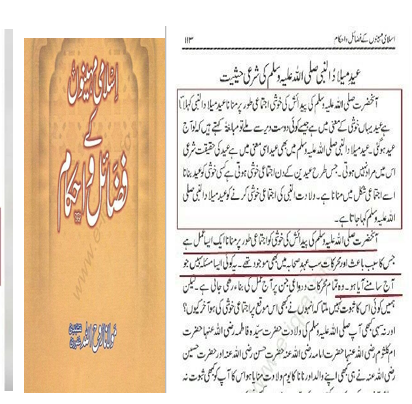 اسلامی مہینوں
کے
فضائل و احکام
اسلامی مہینوں کے فضائل و احکام
۱۱۳
عید میلاد النبی صلی اللہ علیہ وسلم کی شرعی حیثیت
آنحضرت صلی اللہ علیہ وسلم کی پیدائش کی خوشی اجتماعی طور پر منانا عید میلاد النبی کہلاتا
ہے عید یہاں خوشی کے معنی میں ہے جیسے کوئی دوست دیر سے ملے تو مبالغۃً کہتے ہیں کہ لو آج
عید ہوگئی۔ عید میلاد النبی صلی اللہ علیہ وسلم میں بھی عید اسی معنی میں ہے عید کی حقیقت شرعی
اس میں مراد نہیں ہوتی۔ جس طرح عیدین کے دن اجتماعی خوشی ہوتی ہے کسی خوشی کو عید بنانا
اسے اجتماعی شکل میں منانا ہے۔ ولادت النبی کی اجتماعی خوشی کرنے کو عید میلاد النبی صلی
اللہ علیہ وسلم کہا جاتا ہے۔
آنحضرت صلی اللہ علیہ وسلم کی پیدائش کی خوشی کو اجتماعی طور پر منانا ایک ایسا عمل ہے
جس کا سبب باعث اور محرکات سب عہد صحابہ میں بھی موجود تھے۔ یہ کوئی ایسا مسئلہ نہیں جو
آج سامنے آیا ہو۔ وہ تمام محرکات و دواعی جن پر آج عمل کی بناء رکھی جاتی ہے۔ لیکن
ہمیں کوئی اس کا ثبوت نہیں ملتا کہ انہوں نے بھی اس موقع پر اجتماعی خوشی کی ہو آخر کیوں؟
اور نہ کبھی بھی آپ صلی اللہ علیہ وسلم کی ولادت حضرت سیدہ فاطمہ رضی اللہ عنہا حضرت
ام کلثوم رضی اللہ عنہا حضرت امامہ رضی اللہ عنہ حضرت حسن رضی اللہ عنہ اور حضرت حسین
رضی اللہ عنہ نے بھی اپنے والد اور نانا کا یوم ولادت منایا ہو اس کا آپ کو بھی ثبوت نہ